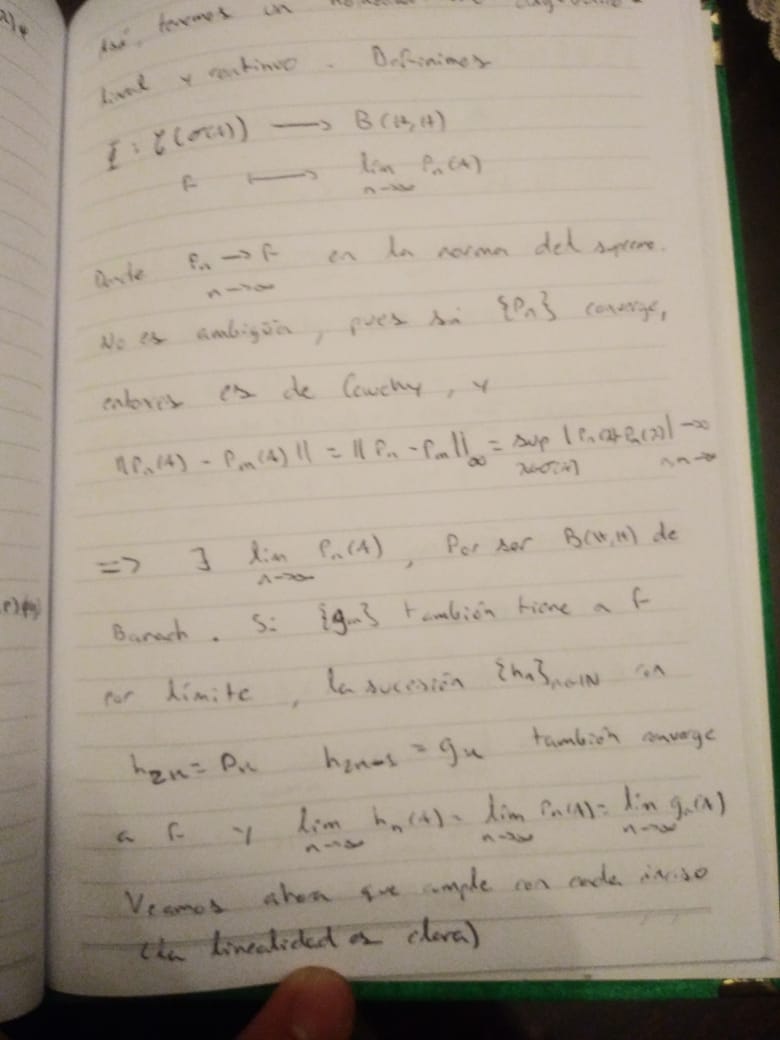 Así, tenemos un
lineal y continuo. Definimos
Φ : C(σ(A)) → B(H,H)
F ↦ lim Pn(A)
n→∞
Donde Pn → F en la norma del supremo.
n→∞
No es ambigüa, pues si {Pn} converge,
entonces es de Cauchy, y
||Pn(A) - Pm(A)|| = ||Pn - Pm||∞ = sup |Pn(λ)-Pm(λ)| →∞
λ∈σ(A) n,m→∞
=> ∃ lim Pn(A), Por ser B(H,H) de
n→∞
Banach. Si {gn} también tiene a F
por límite, la sucesión {hn}n∈IN con
h2n = Pn h2n+1 = gn también converge
a F y lim hn(A) = lim Pn(A) = lim gn(A)
n→∞ n→∞ n→∞
Veamos ahora que cumple con cada inciso
(La linealidad es clara)